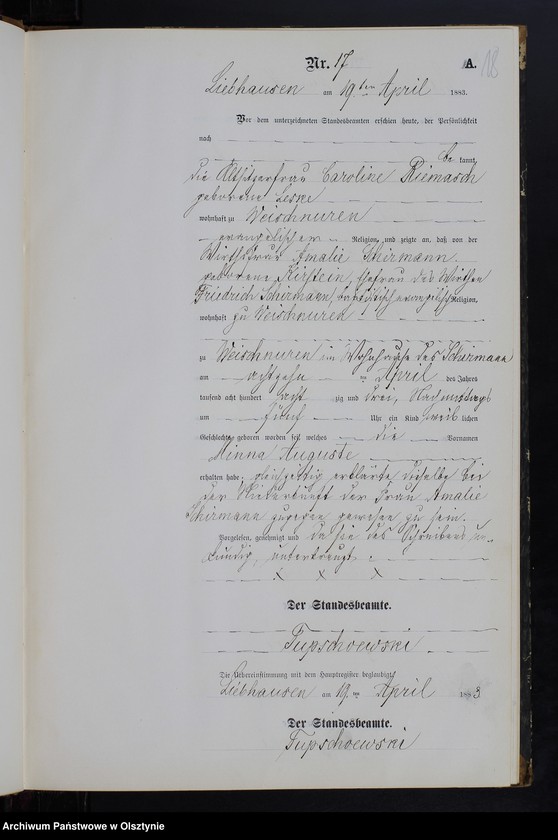 Nr. 17
A. 18
Liebhausen am 19ten April 1883.
Vor dem unterzeichneten Standesbeamten erschien heute, der Persönlichkeit
nach
be kannt,
die Altsitzerfrau Caroline Riemasch
geborene Leske
wohnhaft zu Weischnuren
evangelischer Religion, und zeigte an, daß von der
Wirthsfrau Amalie Schirmann
geborene Kirstein, Ehefrau des Wirthen
Friedrich Schirmann, evangelisch Religion,
wohnhaft zu Weischnuren
zu Weischnuren im Wohnhause des Schirmann
am achtzehn ten April des Jahres
tausend acht hundert acht zig und drei, Nachmittags
um fünf Uhr ein Kind weib lichen
Geschlechts geboren worden sei, welches die Vornamen
Minna Auguste
erhalten habe. gleichzeitig erklärte dieselbe bei
der Niederkunft der Frau Amalie
Schirmann zugegen gewesen zu sein.
Vorgelesen, genehmigt und da sie des Schreibens un-
kundig, unterkreuzt.
x x x
Der Standesbeamte.
Tupschoewski
Die Uebereinstimmung mit dem Hauptregister beglaubigt
Liebhausen am 19ten April 1883
Der Standesbeamte.
Tupschoewski
Archiwum Państwowe w Olsztynie